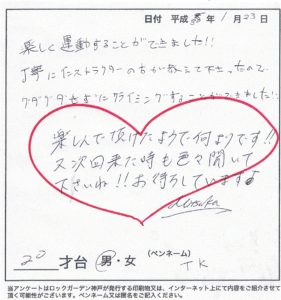 日付 平成 年 1月 23日
楽しく運動することができました!!
丁寧にインストラクターの方が教えて下さったので、
クダグダせずにクライミングすることができました!!
楽しんで頂けたようで何よりです!!
又次回来た時も色々聞いて
下さいね!!お待ちしています♪
20 才台 男・女 (ペンネーム) TK
当アンケートはロックガーデン神戸が発行する印刷物又は、インターネット上にて内容をご紹介させて
頂く可能性がございます。ペンネーム又は匿名をご記入ください。